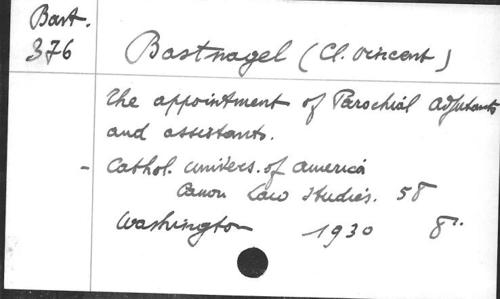 Bast.
376
Bastnagel (Cl. Vincent)
The appointment of Parochial Adjutants
and assistants.
- Cathol. Univers. of America
Canon Law Studies. 58
Washington 1930 8°.